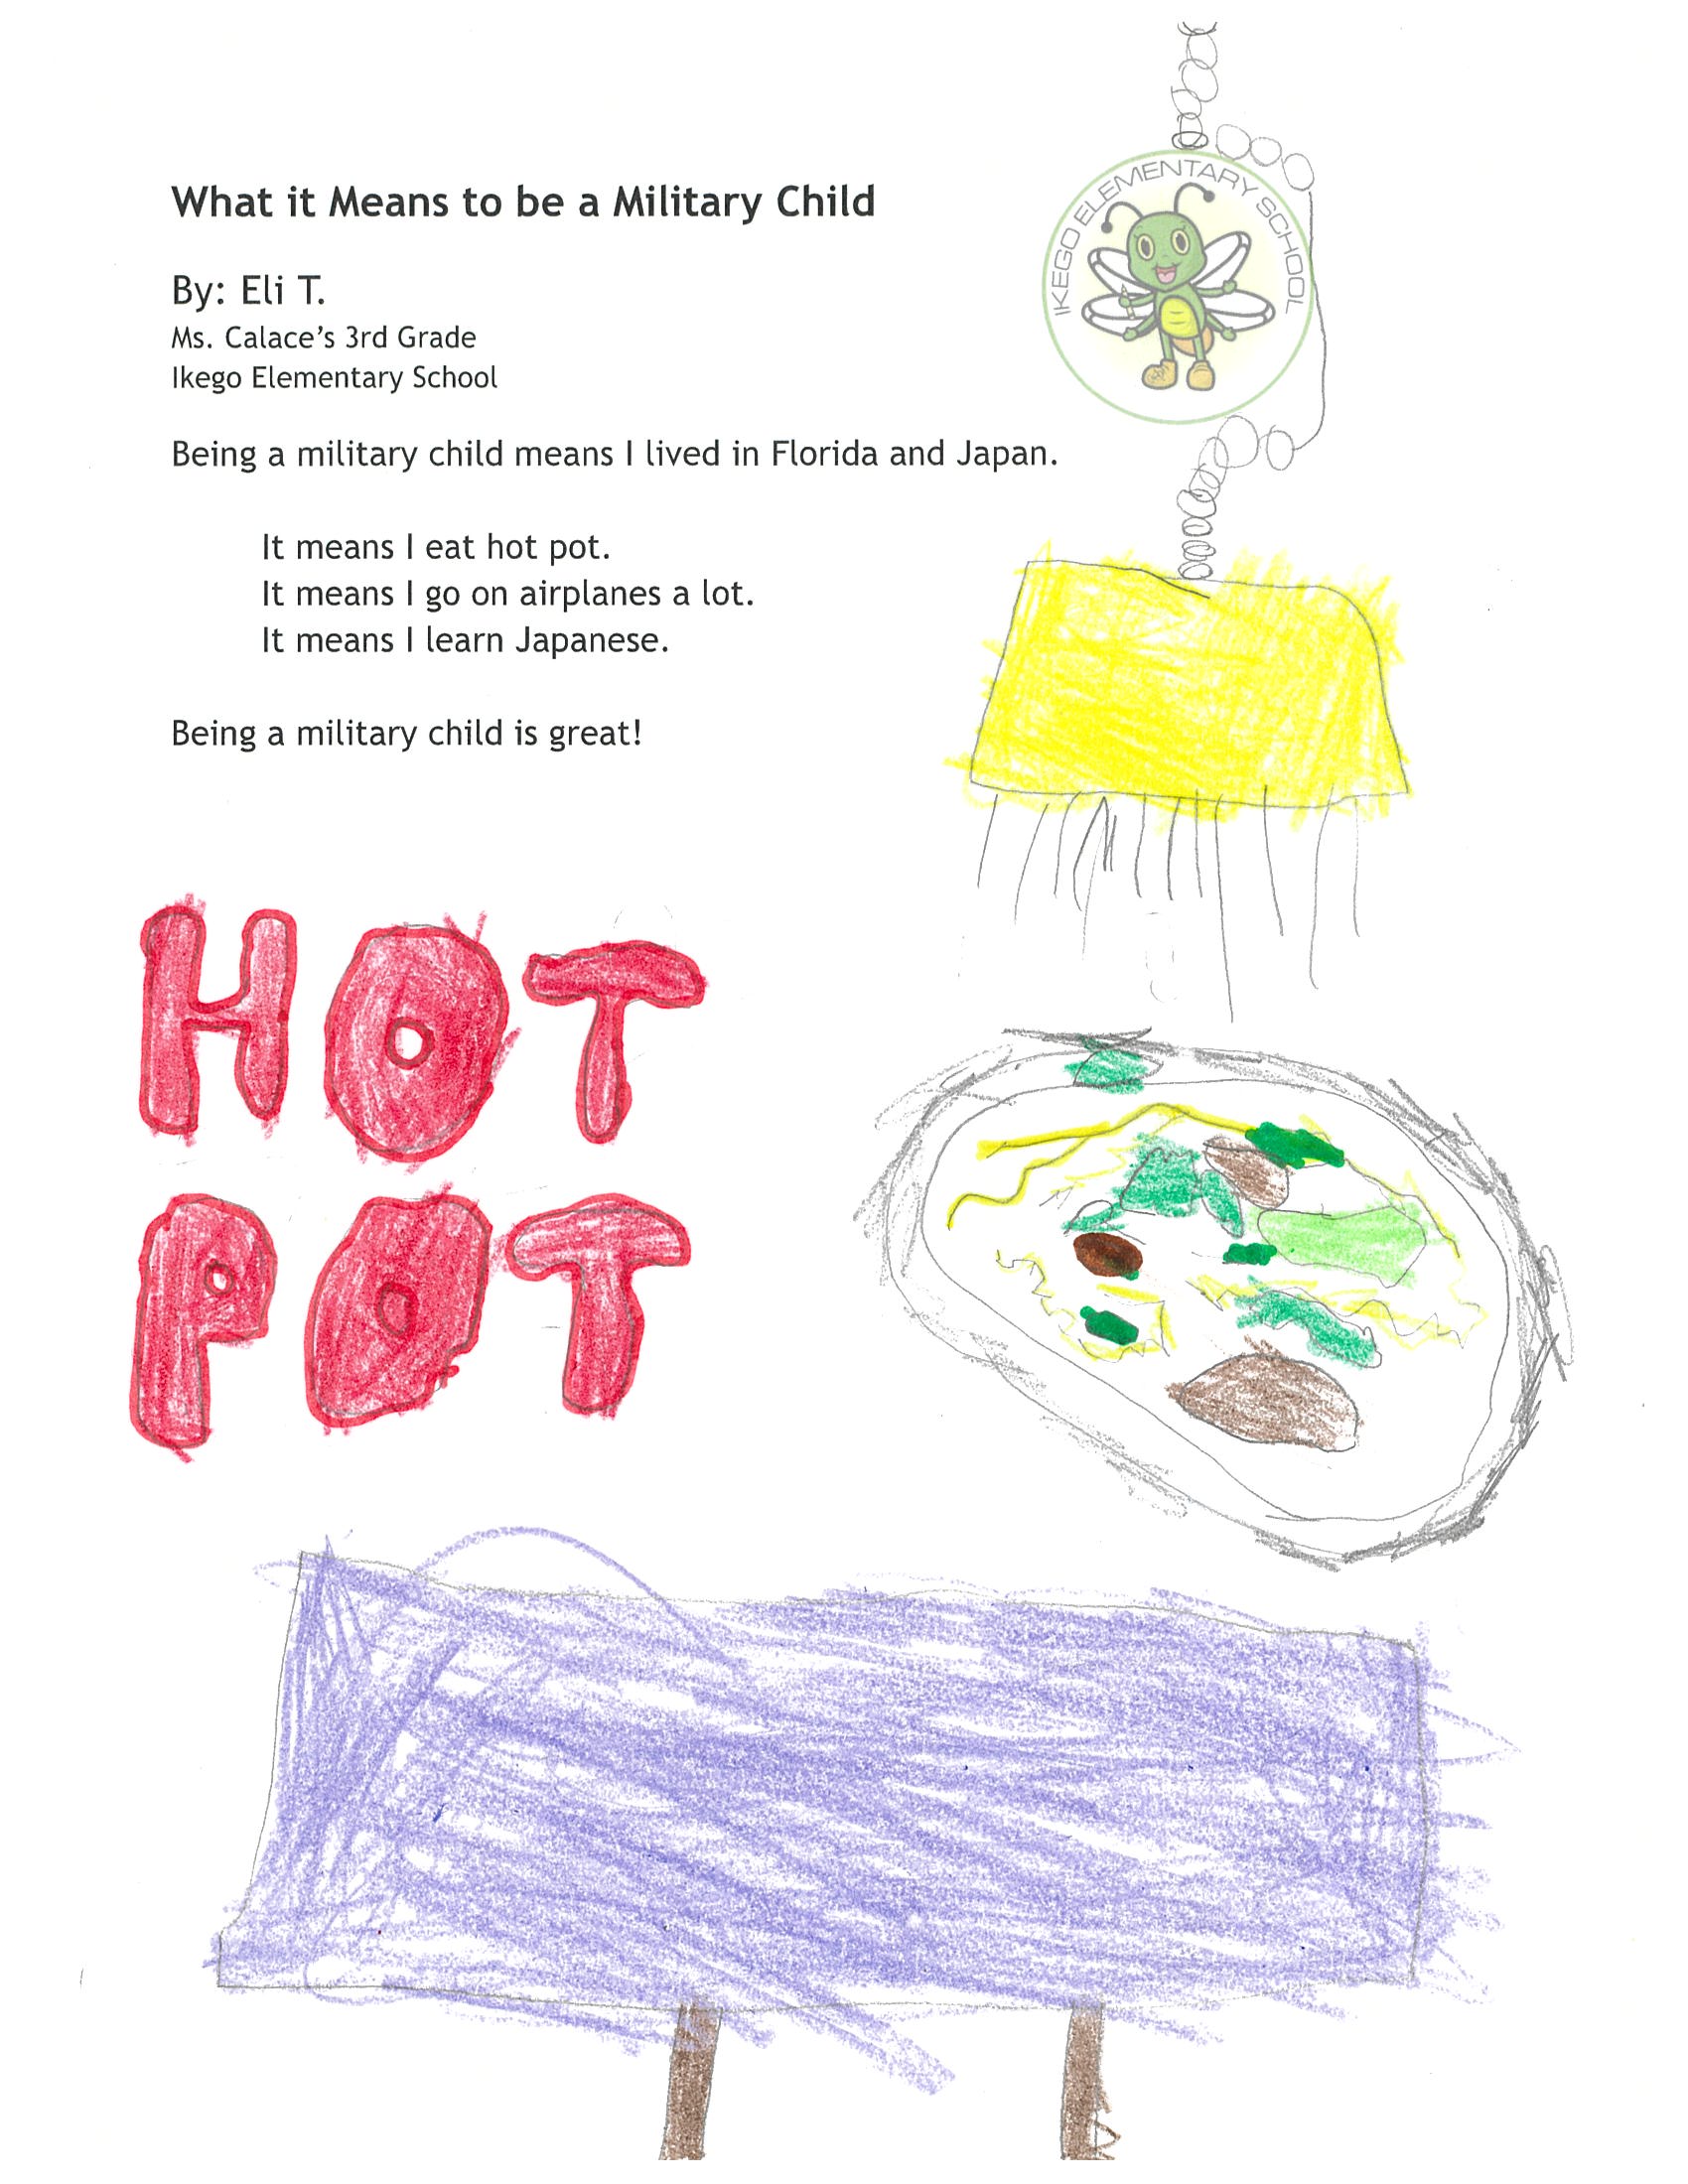 What it Means to be a Military Child
By: Eli T.
Ms. Calace's 3rd Grade
Ikego Elementary School
IKEGO ELEMENTARY SCHOOL
Being a military child means I lived in Florida and Japan.
It means I eat hot pot.
It means I go on airplanes a lot.
It means I learn Japanese.
Being a military child is great!
HOT
POT